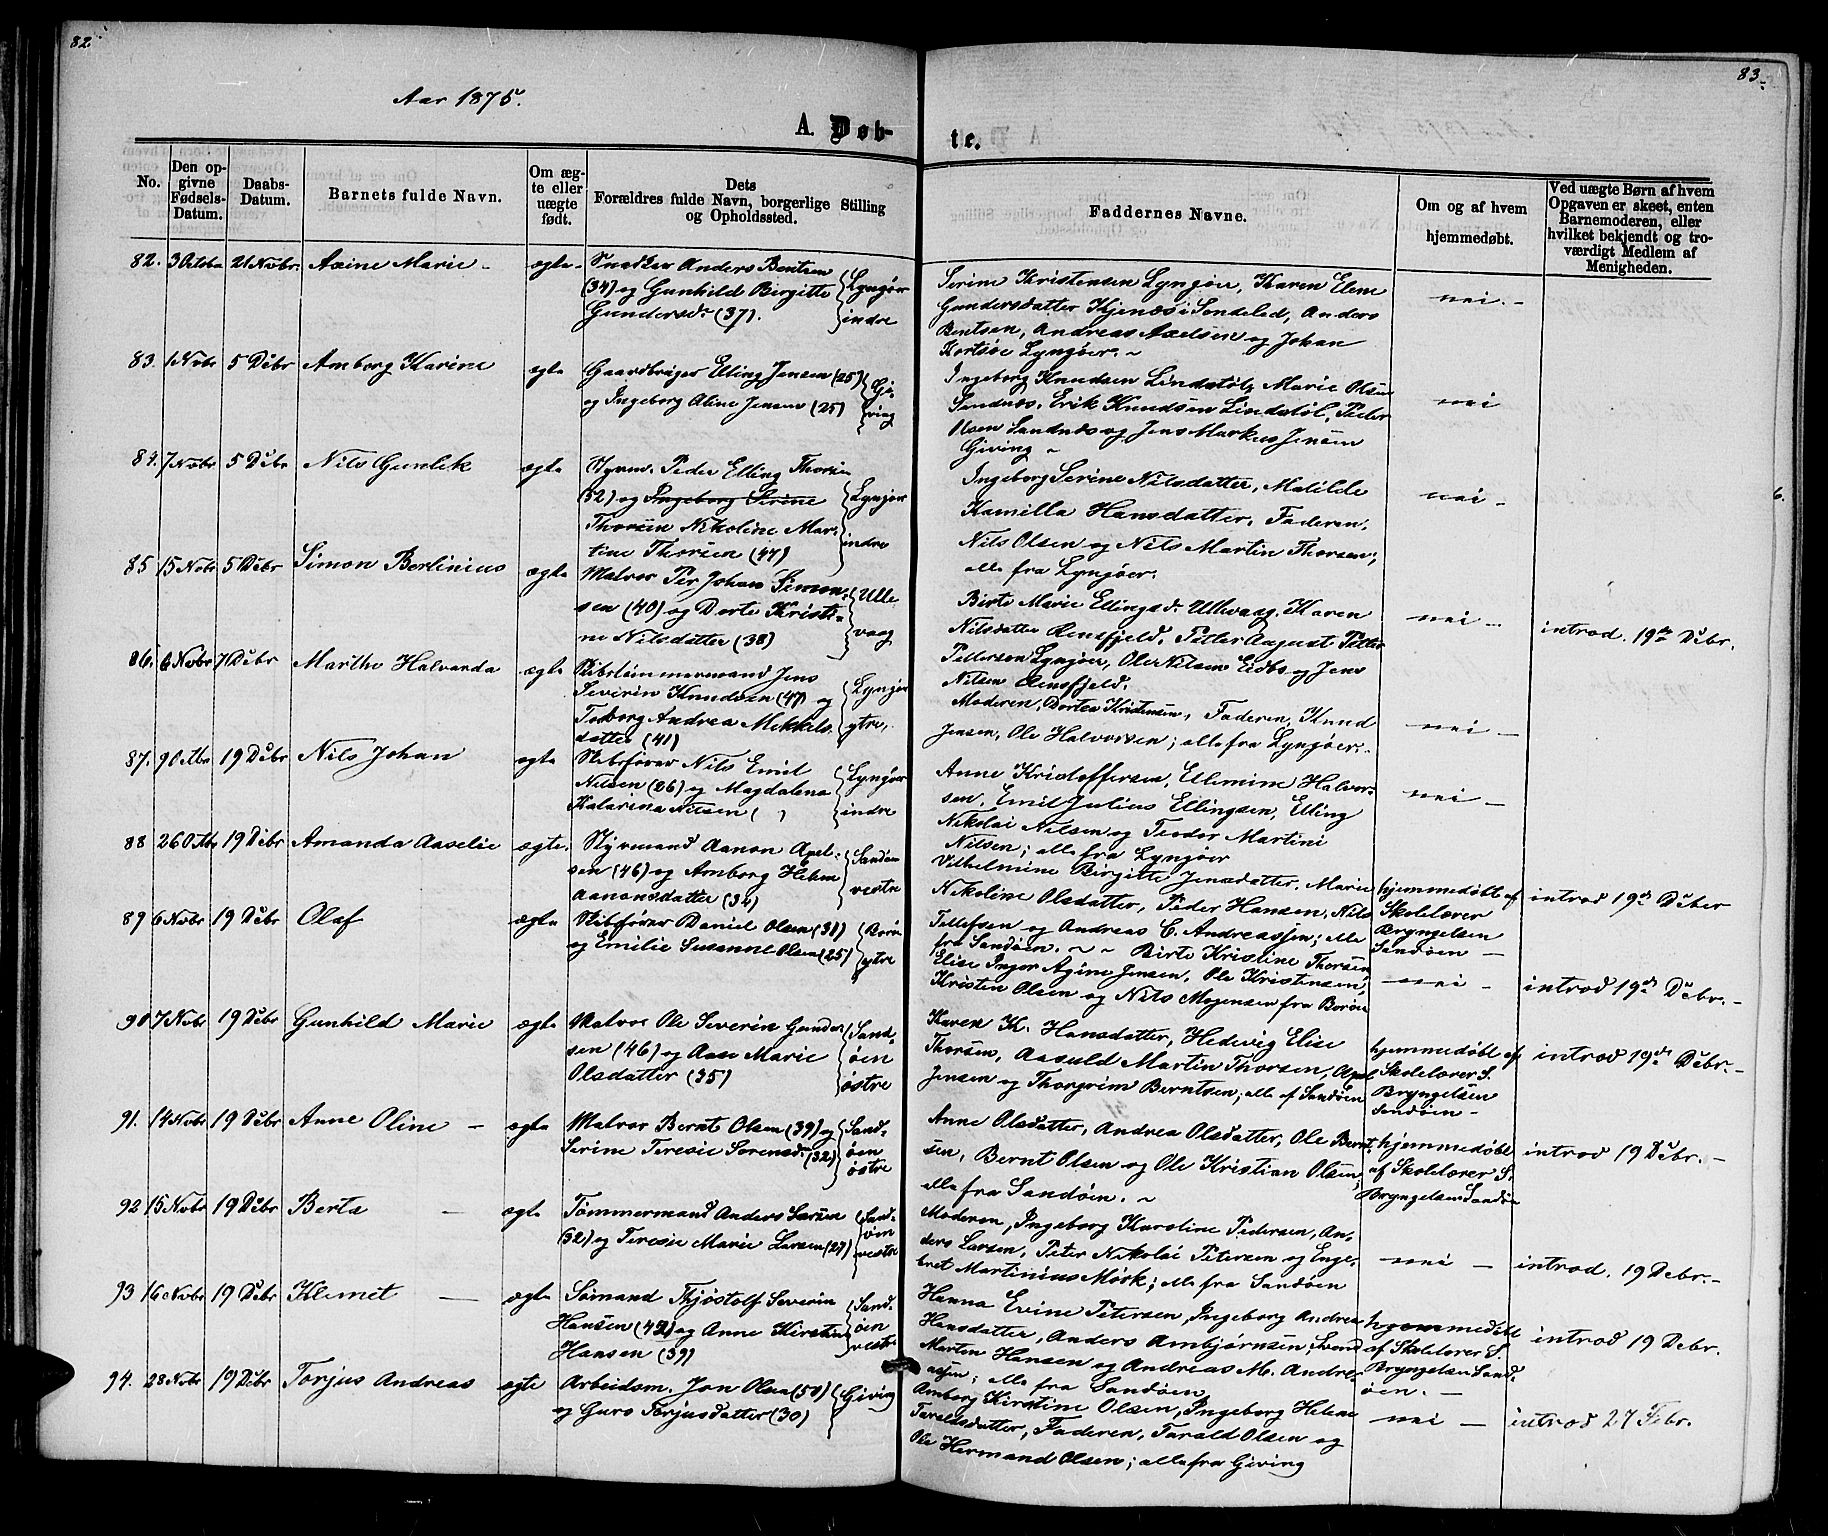 82.
83.
Aar 1875.
A. Døb-
te.
No.
Den op-
givne
Fødsels-
Datum.
Daabs-
Datum.
Barnets fulde Navn.
Om æg-
te eller
uægte
født.
Dets
Forældres fulde Navn, borgerlige Stilling
og Opholdssted.
Faddernes Navne.
Om og af hvem
hjemmedøbt.
Ved uægte Børn af hvem
Opgaven er skeet, enten
Barnemoderen, eller
hvilket bekjendt og tro-
værdigt Medlem af
Menigheden.
82. 3 Octobr 21 Novbr. Axine Marie - ægte
Snedker Anders Bentsen
(34) og Gunhild Birgitte
Gundersd. (37).
Lyngør
indre
Serine Kristensen Lyngøer, Karen Elene
Gundersdatter Kjenæs i Søndeled, Anders
Bentsen, Andreas Axelsen og Johan
Kortsøe Lyngøer. ~
nei. -
83. 1 Nobr 5 Debr Amborg Karine ægte
Gaardbruger Elling Jensen (25)
og Ingeborg Aline Jensen (25)
Gi-
ving
Ingeborg Knudsen Lindstøl, Marie Olsen
Sandnæs, Erik Knudsen Lindstøl, Peder
Olsen Sandnæs og Jens Markus Jensen
Giving ~
nei
84. 7 Nobr 5 Debr Nils Gunlek ægte
Styrm. Peder Elling Thorsen
(52) og Ingeborg Serine
Thorsen Nikoline Mar-
tine Thorsen (47)
Lyngør
indre
Ingeborg Serine Nilsdatter, Matilde
Kamilla Hansdatter, Faderen,
Nils Olsen og Nils Martin Thorsen,
alle fra Lyngøer.
nei -
85 15 Nobr 5 Debr Simon Berlinius ægte
Matros Per Johan Simon-
sen (40) og Dorte Kristi-
ne Nilsdatter (38)
Ulle
vaag
Birte Marie Ellingsd. Ullevaag, Karen
Nilsdatter Rensfjeld, Petter August Petter
Pettersen Lyngøer, Ole Nilsen Eidbo og Jens
Nilsen Rensfjeld.
nei - introd. 19de Debr.
86. 6 Nobr 7 Debr Marthe Halvanda ægte
Skibstømmermand Jens
Severin Knudsen (47) og
Torborg Andrea Mikkels-
datter (41)
Lyngør
ytre,
Moderen, Dortea Kristensen, Faderen, Knud
Jensen, Ole Halvorsen; alle fra Lyngøer.
nei -
87. 9 Octbr 19 Debr Nils Johan ægte
Skibsfører Nils Emil
Nilsen (26) og Magdalena
Katarina Nilsen ( )
Lyngøer
indre
Anne Kristoffersen, Ellemine Halvor-
sen, Emil Julius Ellingsen, Elling
Nikolai Nilsen og Teodor Martini
Nilsen; alle fra Lyngøer
nei -
88 26 Octbr 19 Debr Amanda Aaselie ægte.
Styrmand Aanon Apel-
sen (46) og Amborg Helene
Aanonsdatter (34)
Sandøen
vestre
Vilhelmine Birgitte Jensdatter, Marie
Nikoline Olsdatter, Peder Hansen, Nils
Tellefsen og Andreas C. Andreassen; alle
fra Sandøen. ~
hjemmedøbt af
Skolelærer
Bryngelsen
Sandøen -
introd 19de Deber
89 6 Nobr 19 Debr Olaf ægte
Skibsfører Daniel Olsen (31)
og Emilie Susanne Olsen (25)
Borø
ytre
Birte Kristine Thorsen
Elise Inger Agine Jensen, Ole Kristensen,
Kristen Olsen og Nils Mogensen fra Borøen
nei - introd 19de Debr. -
90 7 Nobr 19 Debr Gunhild Marie ægte
Matros Ole Severin Gunder-
sen (46) og Aase Marie
Olsdatter (35)
Sand-
øen
østre
Karen K. Hansdatter, Hedevig Elise
Thorsen, Aasuld Martin Thorsen, Apel
Jensen og Thorgrim Berntsen; alle af Sandøen
hjemmedøbt af
Skolelærer S.
Bryngelsen
Sandøen -
introd 19de Debr. -
91. 14 Nobr 19 Debr Anne Oline - ægte
Matros Bernt Olsen (39) og
Serine Teresie Sørensd. (32)
Sand-
øen
østre
Anne Olsdatter, Andrea Olsdatter, Ole Bernt-
sen, Bernt Olsen og Ole Kristian Olsen,
alle fra Sandøen. ~
hjemmedøbt
af Skolelærer S.
Bryngelsen Sandøen
introd 19 Debr. -
92 15 Nobr 19 Debr Berta - ægte
Tømmermand Anders Larsen
(32) og Teresie Marie Larsen (27)
Sand-
øen
vestre
Moderen, Ingeborg Karoline Pedersen, An-
ders Larsen, Peter Nikolai Petersen og Enge-
bret Martinius Mørk; alle fra Sandøen
nei - introd. 19 Debr. -
93 16 Nobr 19 Debr Klemet - ægte
Sømand Thjøstolf Severin
Hansen (42) og Anne Kirstine
Hansen (39)
Sand-
øen
vestre
Hanna Evine Petersen, Ingeborg Andrea
Hansdatter, Anders Ambjørnsen, Svend
Martin Hansen og Andreas M. Andre-
asen; alle fra Sandøen
hjemmedøbt
af Skolelærer S.
Bryngelsen Sand-
øen. -
introd 19 Debr.
94. 28 Nobr 19 Debr Torjus Andreas ægte
Arbeidsm. Jon Olsen (50)
og Guro Torjusdatter (30)
Giving
Amborg Kirstine Olsen, Ingeborg Helene
Taraldsdatter, Faderen, Tarald Olsen og
Ole Hermand Olsen; alle fra Giving
nei - introd 27 Febr.